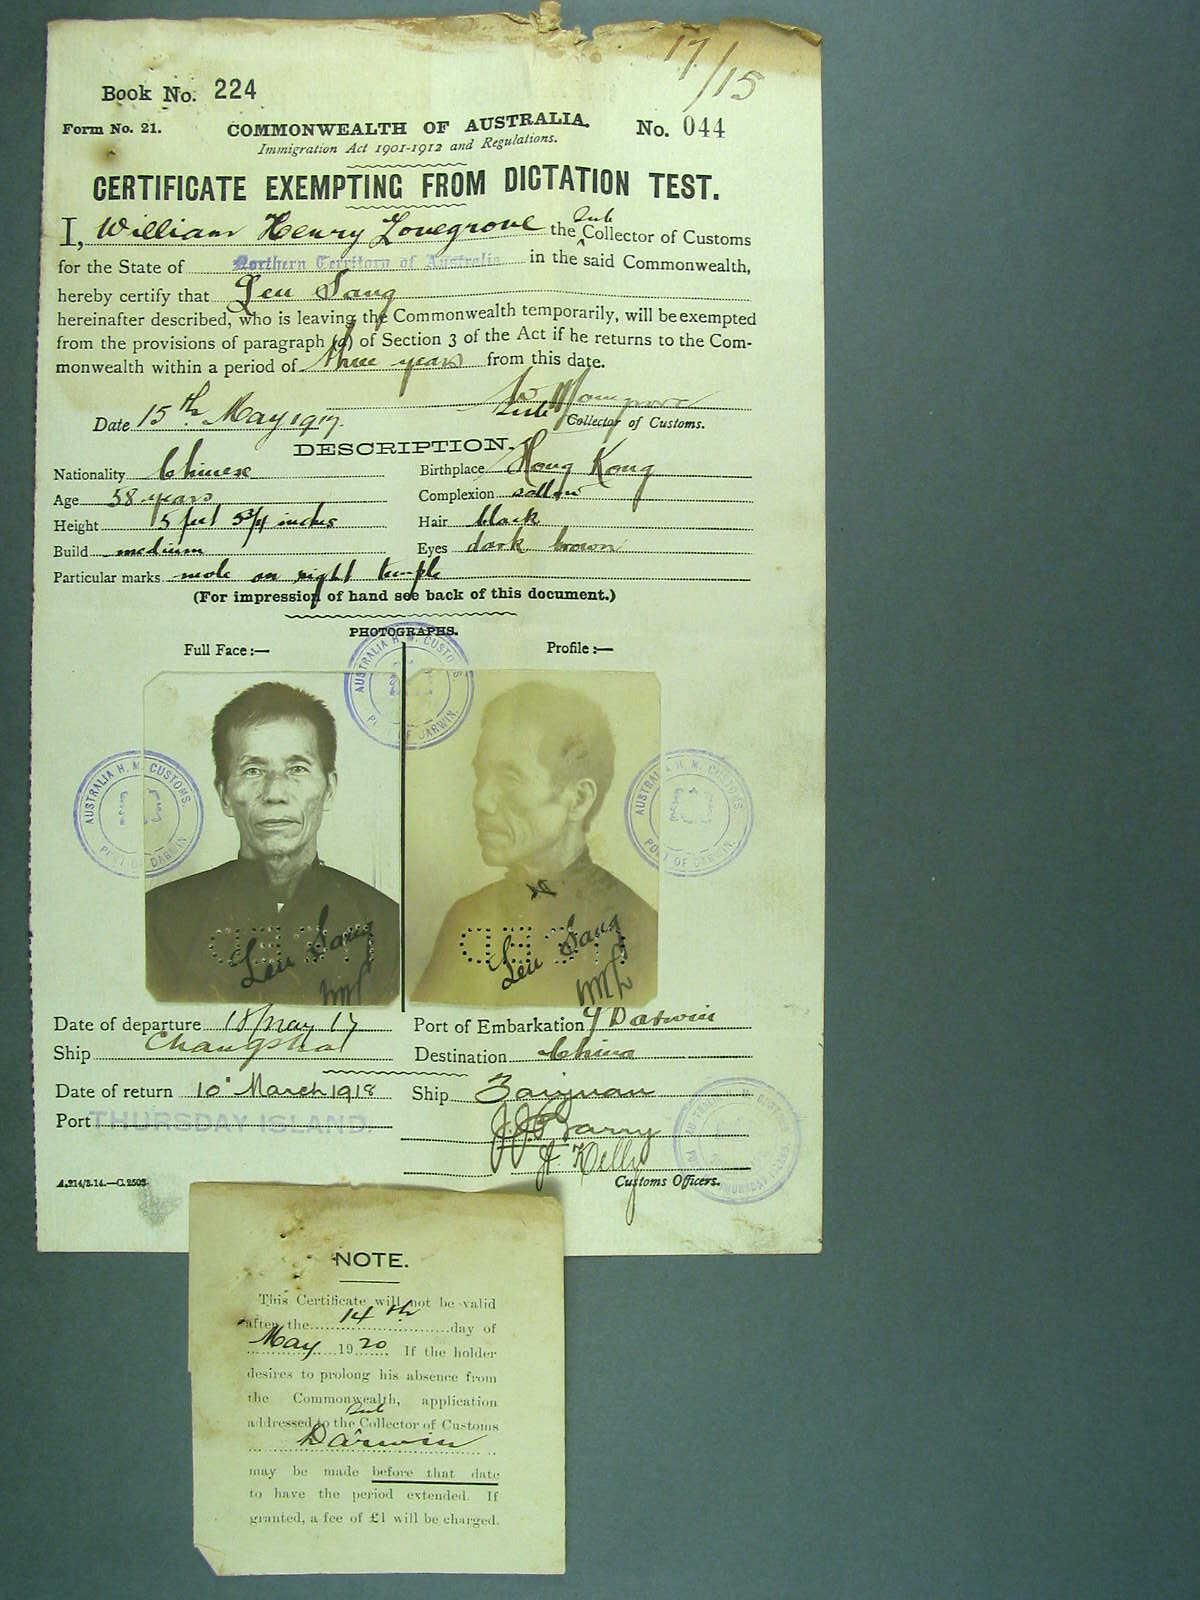 17/15
Book No. 224
Form No. 21. COMMONWEALTH OF AUSTRALIA. No. 044
Immigration Act 1901-1912 and Regulations.
CERTIFICATE EXEMPTING FROM DICTATION TEST.
I, William Henry Lovegrove the Sub Collector of Customs
for the State of Northern Territory of Australia in the said Commonwealth,
hereby certify that Leu Sang
hereinafter described, who is leaving the Commonwealth temporarily, will be exempted
from the provisions of paragraph (a) of Section 3 of the Act if he returns to the Com-
monwealth within a period of three years from this date.
Date 15th May 1917. Sub Collector of Customs.
DESCRIPTION.
Nationality Chinese Birthplace Hong Kong
Age 58 years Complexion sallow
Height 5 feet 5 3/4 inches Hair black
Build medium Eyes dark brown
Particular marks mole on right temple
(For impression of hand see back of this document.)
PHOTOGRAPHS.
Full Face:— Profile:—
AUSTRALIA H. M. CUSTOMS. PORT OF DARWIN.
AUSTRALIA H. M. CUSTOMS. PORT OF DARWIN.
AUSTRALIA H. M. CUSTOMS. PORT OF DARWIN.
Leu Sang Leu Sang
WHL WHL
Date of departure 18 May 17 Port of Embarkation Darwin
Ship Changsha Destination China
Date of return 10 March 1918 Ship Taiyuan
Port THURSDAY ISLAND. J.J. Barry
Kelly
Customs Officers.
A.214/3.14.—C.2503.
NOTE.
This Certificate will not be valid
after the 14th day of
May 1920. If the holder
desires to prolong his absence from
the Commonwealth, application
addressed to the Sub Collector of Customs
Darwin
may be made before that date
to have the period extended. If
granted, a fee of £1 will be charged.